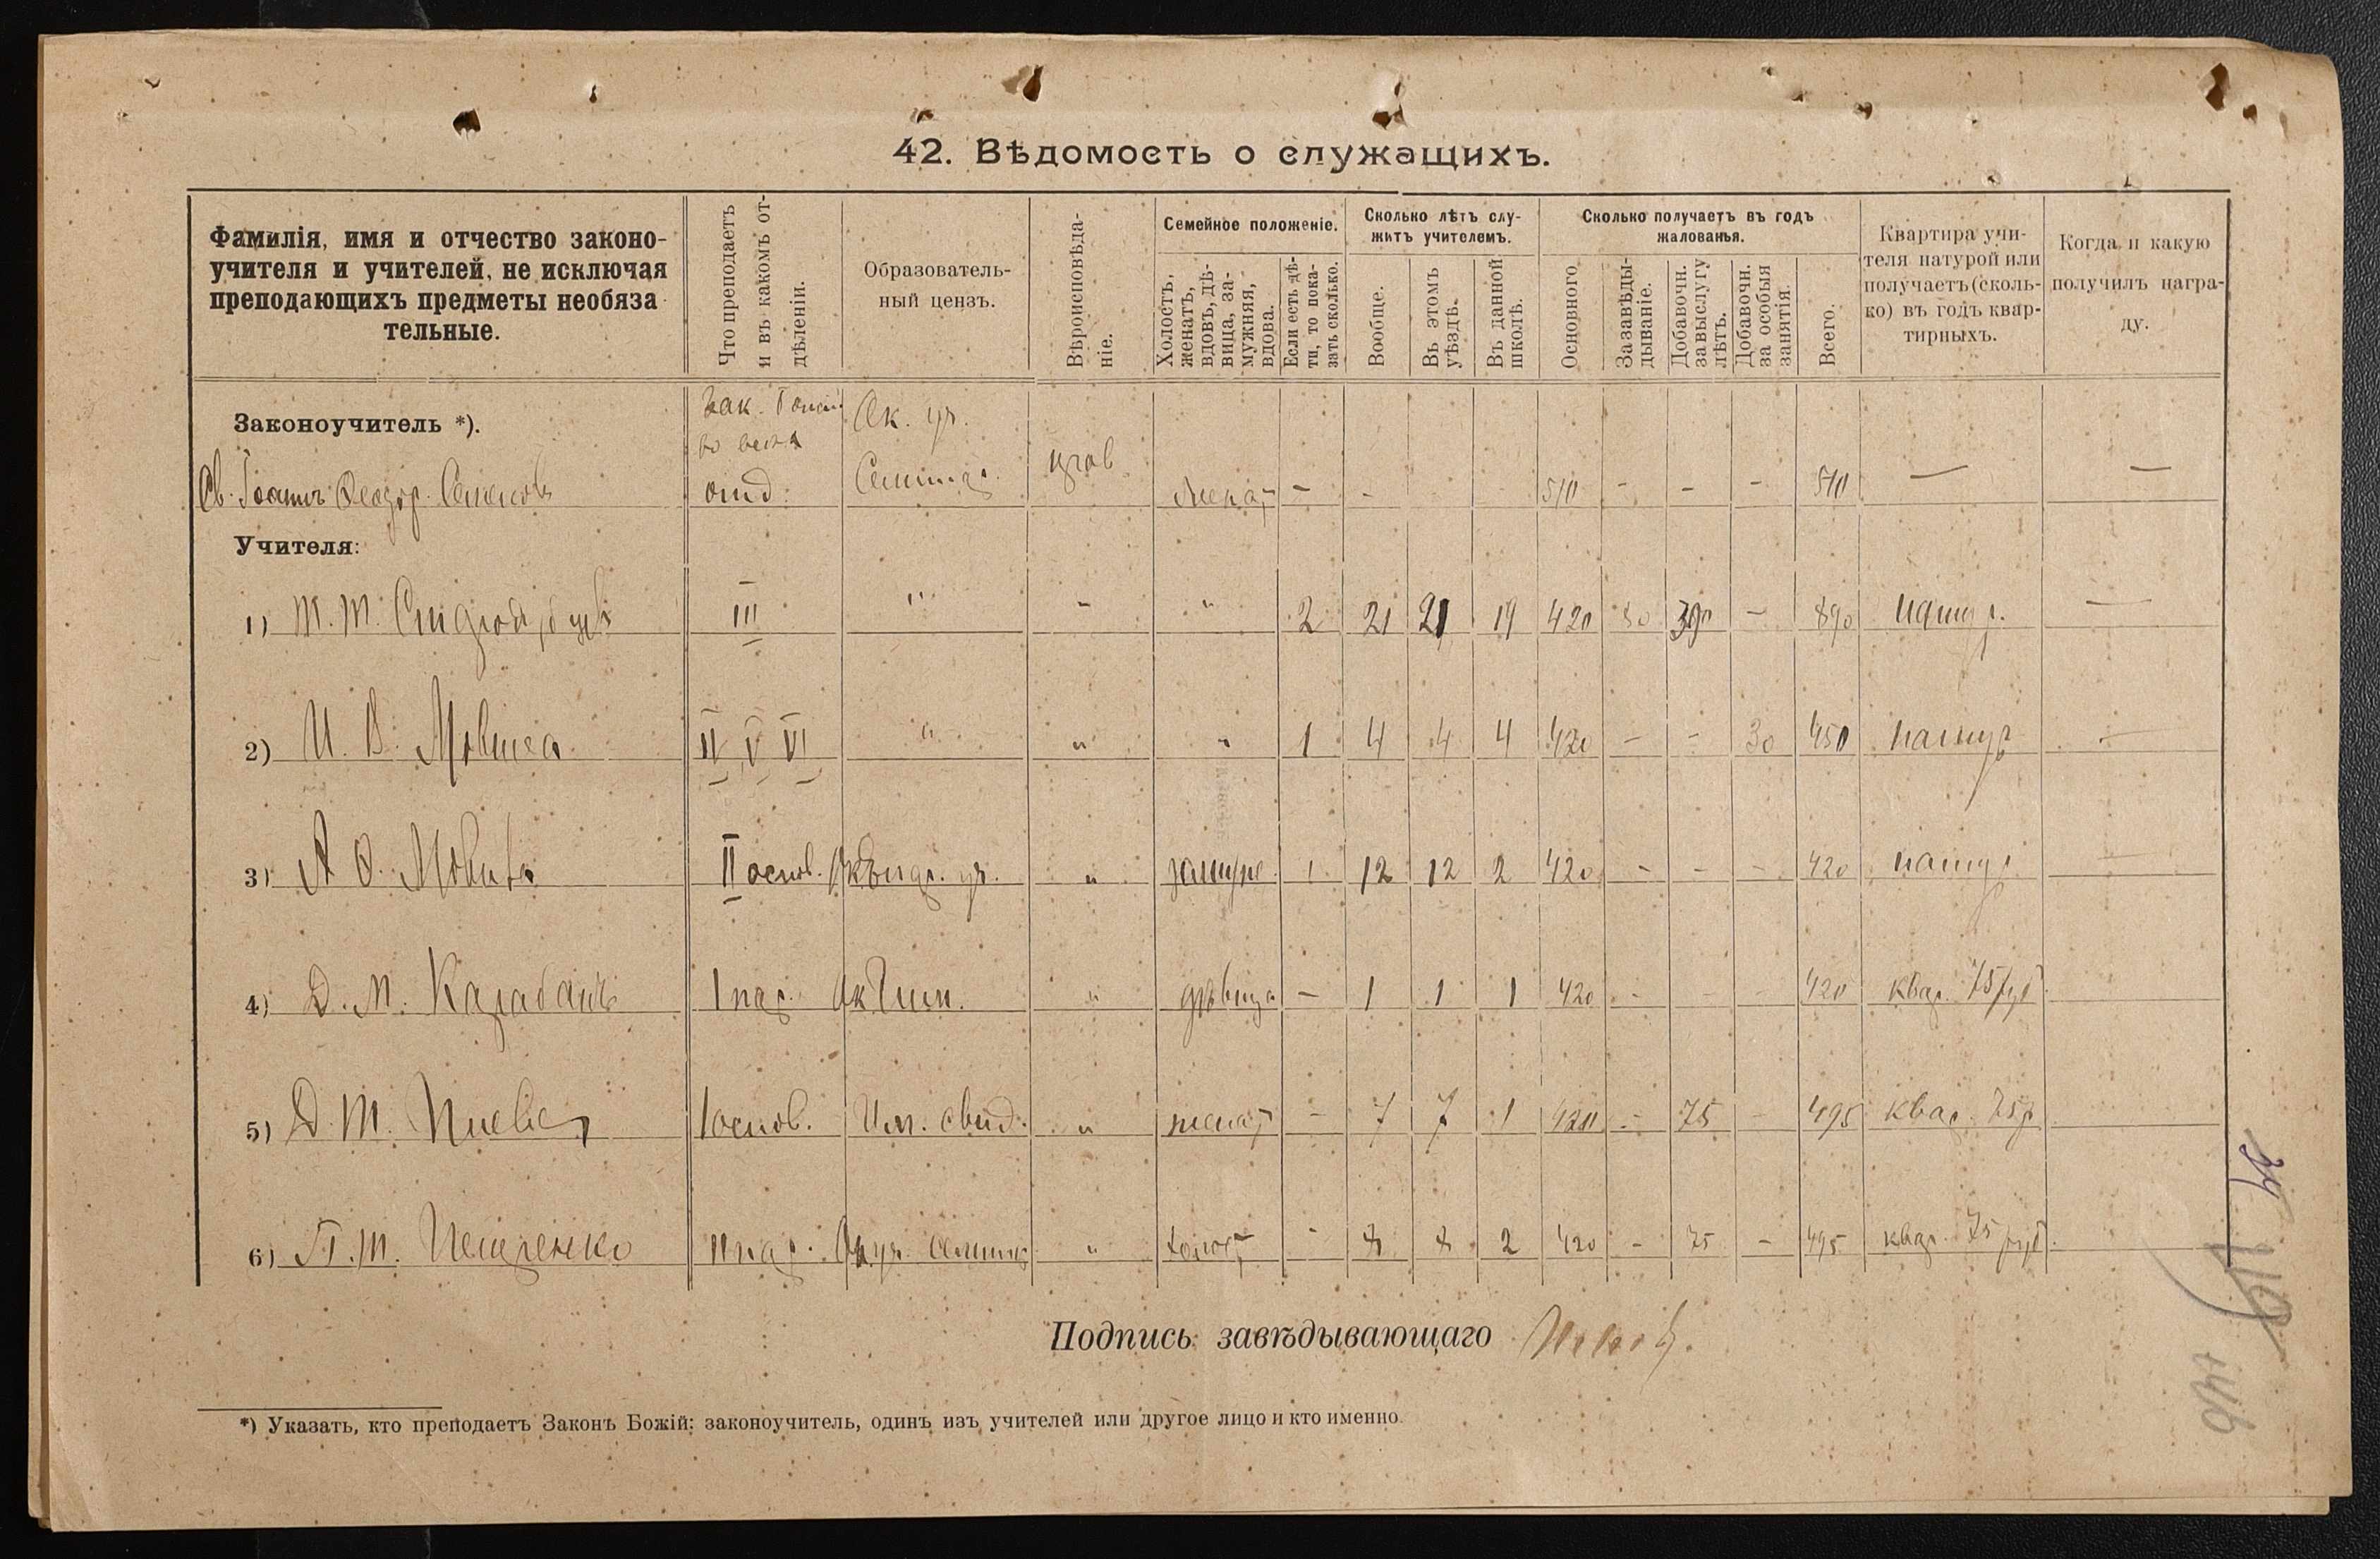 42. Вѣдомость о служащихъ.
Фамилія, имя и отчество законо-
учителя и учителей, не исключая
преподающихъ предметы необяза-
тельные.
Что преподаетъ
и въ какомъ от-
дѣленіи.
Образователь-
ный цензъ.
Вѣроисповѣда-
ніе.
Семейное положеніе.
Холостъ,
женатъ,
вдовъ, дѣ-
вица, за-
мужняя,
вдова.
Если есть дѣ-
ти, то пока-
зать сколько.
Сколько лѣтъ слу-
житъ учителемъ.
Вообще.
Въ этомъ
уѣздѣ.
Въ данной
школѣ.
Сколько получаетъ въ годъ
жалованья.
Основного
За завѣды-
дываніе.
Добавочн.
за выслугу
лѣтъ.
Добавочн.
за особыя
занятія.
Всего.
Квартира учи-
теля натурой или
получаетъ (сколь-
ко) въ годъ квар-
тирныхъ.
Когда и какую
получилъ награ-
ду.
Законоучитель *).
Зак.
Ок. уч.
Св. Іоаннъ Ѳеодор. отд. Семинар. прав женат — - 510 - - - 510 — —
Учителя:
1) Т. Т. III " " " 2 21 21 19 420 80 390 - 890 натур. —
2) И. В. II V VI " " " 1 4 4 4 420 - - 30 450 натур —
3) А Ѳ. II основ. уч. " замуж 1 12 12 2 420 - - - 420 натур —
4) Д. М. Карабанъ I пар. Ок Гим. " дѣвица - 1 1 1 420 - - - 420 квар. 75 руб
5) Д. Т. I основ. Им. свид. " женат - 7 7 1 420 - 75 - 495 квар. 75 р
6) П. Т. Петренко II пар. Ок уч. семин " холост - 8 8 2 420 - 75 - 495 квар. 75 руб.
Подпись завѣдывающаго
*) Указать, кто преподаетъ Законъ Божій: законоучитель, одинъ изъ учителей или другое лицо и кто именно.